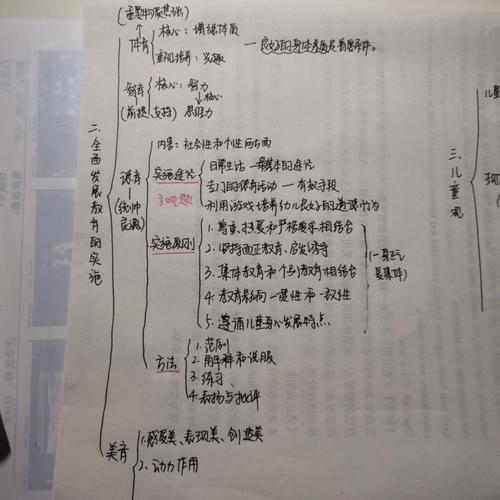 (重要物质基础)
体育
核心：增强体质
重视培养：兴趣
— 良好的身体素质是首要条件。
智育
(前提、支持)
核心：智力
↓核心
思维力
二、全面发展教育的实施
德育
(统帅灵魂)
内集：社会性和个性两方面
实施途径
主观题
日常生活—最基本的途径
专门的德育活动—有效手段
利用游戏培养幼儿良好的道德行为
实施原则
1. 尊重、热爱和严格要求相结合
2. 坚持正面教育、启发诱导
3. 集体教育和个别教育相结合
4. 教育影响一贯性和一致性
5. 遵循儿童身心发展特点
方法
1. 范例
2. 用讲解和说服
3. 练习
4. 表扬与批评
美育
1. 感受美、表现美、创造美
2. 动力作用
三、儿童观
儿童